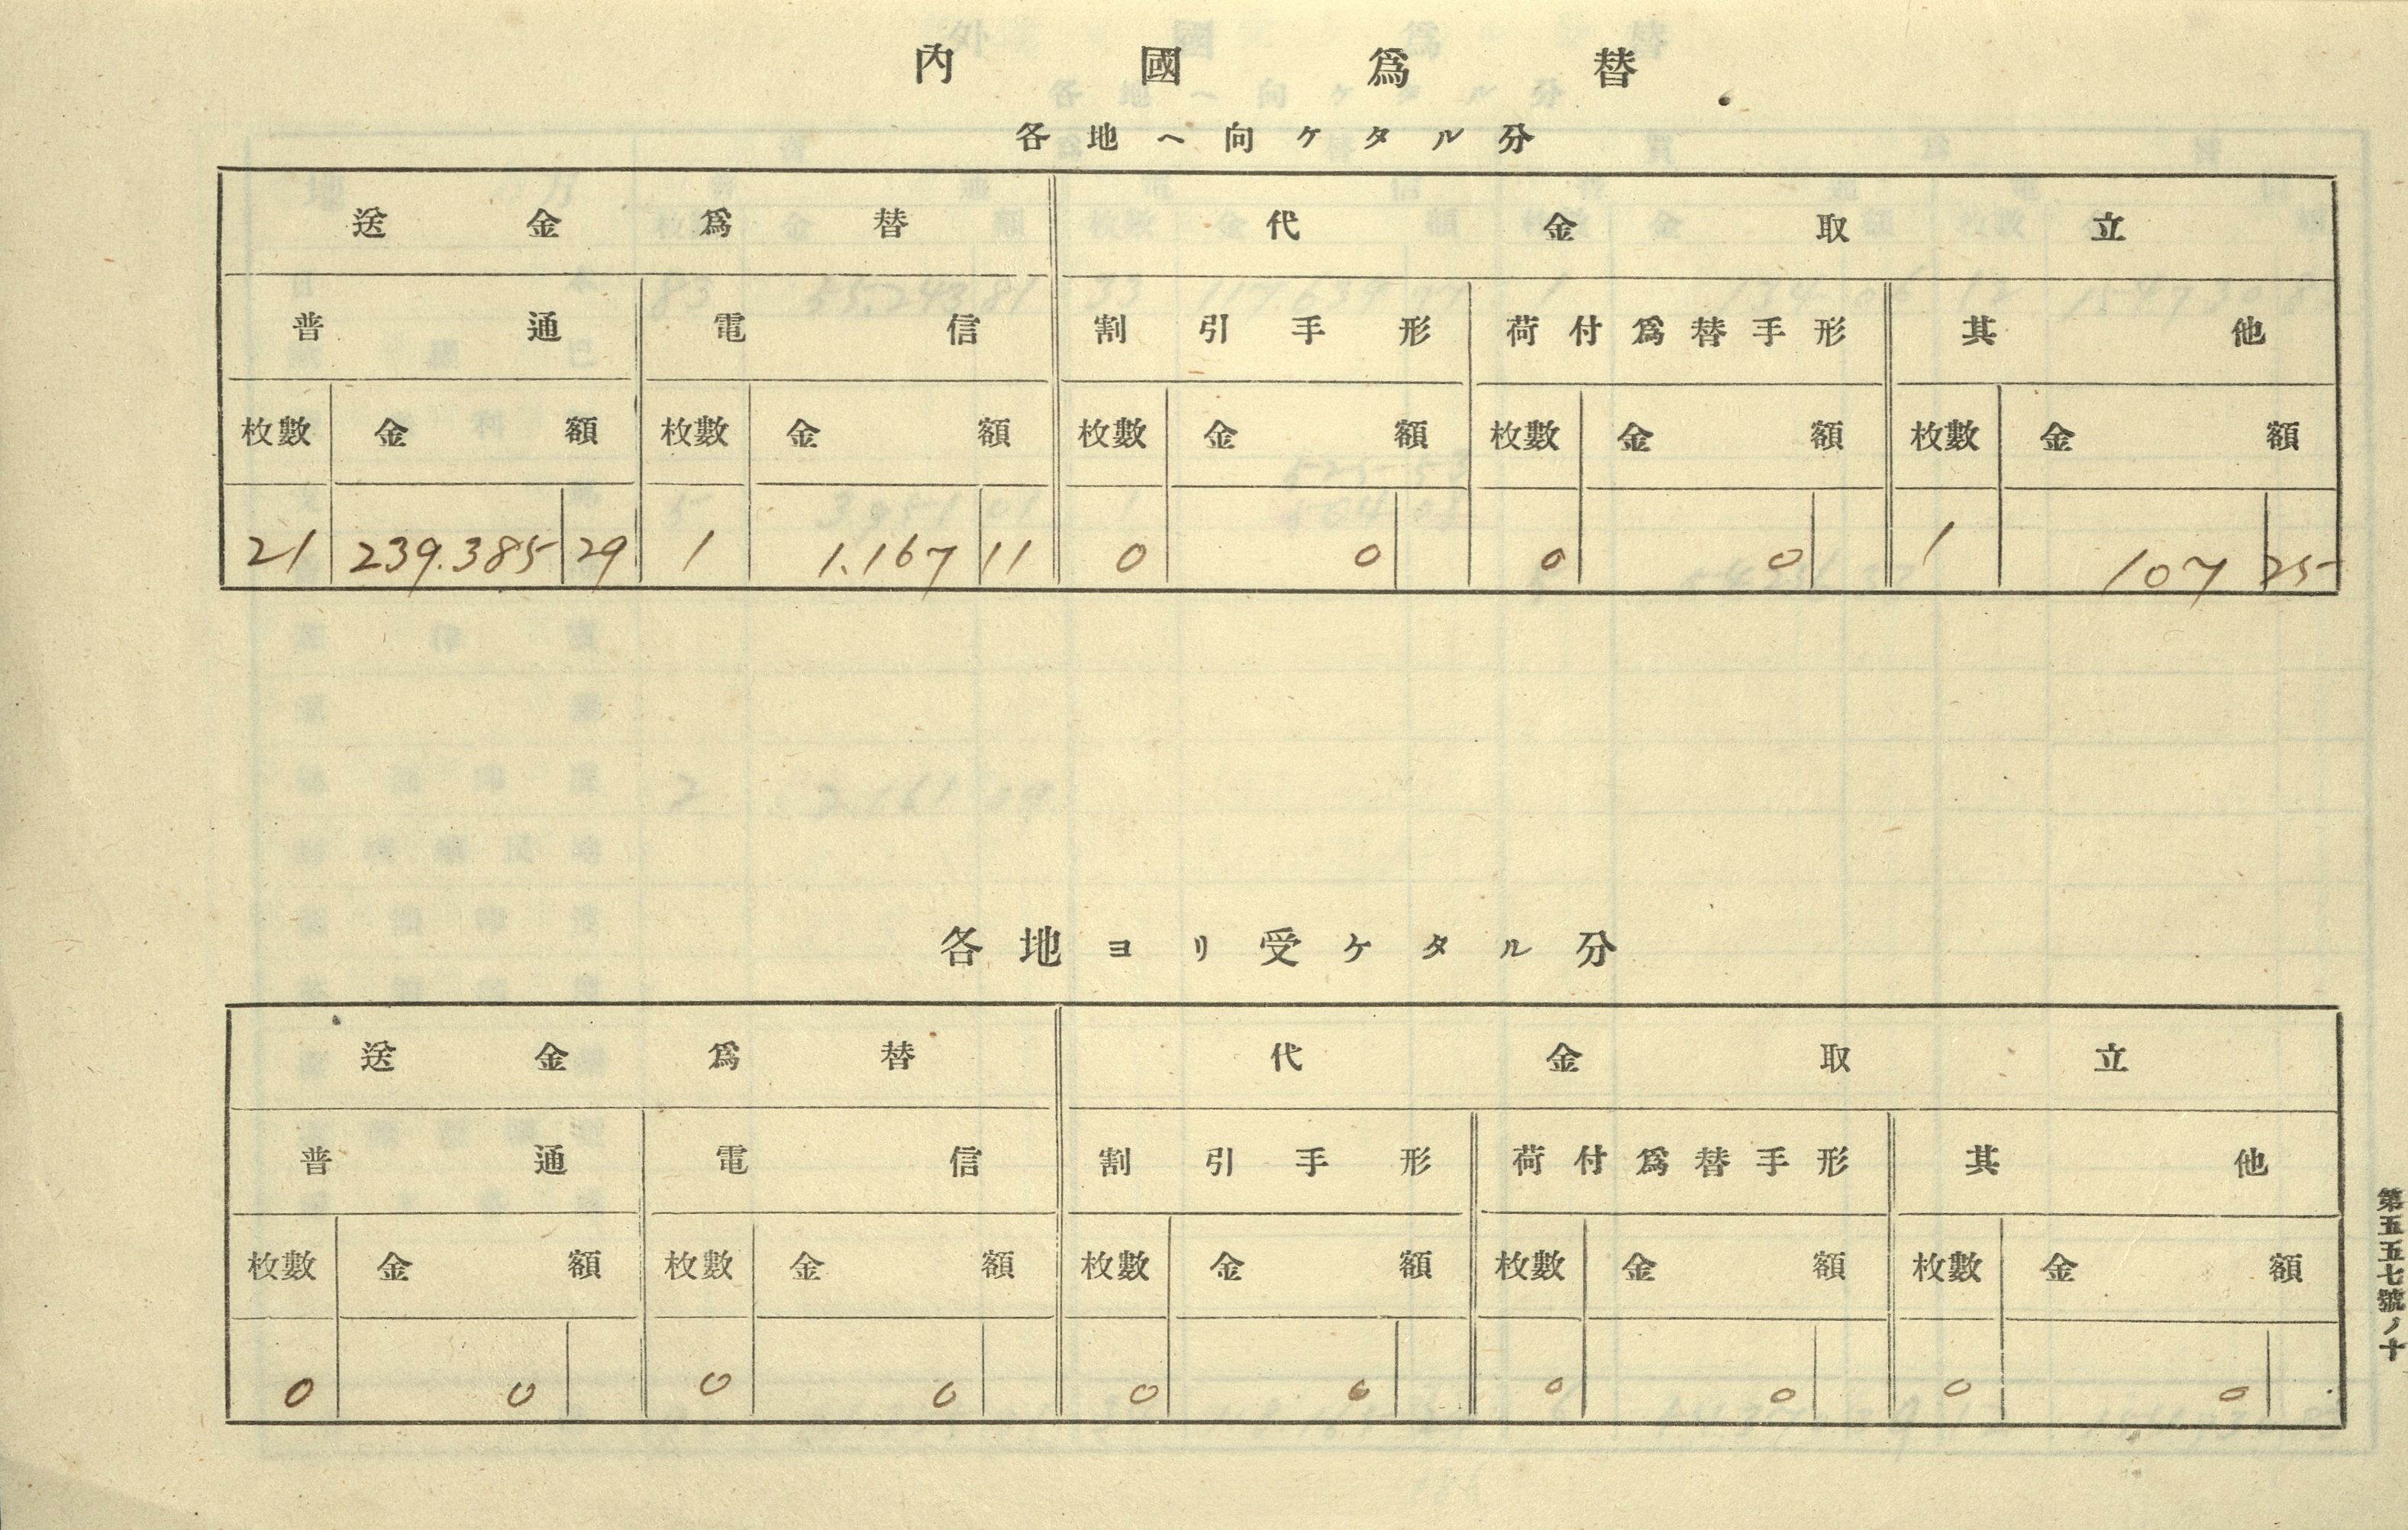 內國爲替
各地ヘ向ケタル分
送金爲替 代金取立
普通 電信 割引手形 荷付爲替手形 其他
枚數 金額 枚數 金額 枚數 金額 枚數 金額 枚數 金額
21 239.385 29 1 1.167 11 0 0 0 0 1 107 25
各地ヨリ受ケタル分
送金爲替 代金取立
普通 電信 割引手形 荷付爲替手形 其他
枚數 金額 枚數 金額 枚數 金額 枚數 金額 枚數 金額
0 0 0 0 0 0 0 0 0 0
第五五七號ノ十